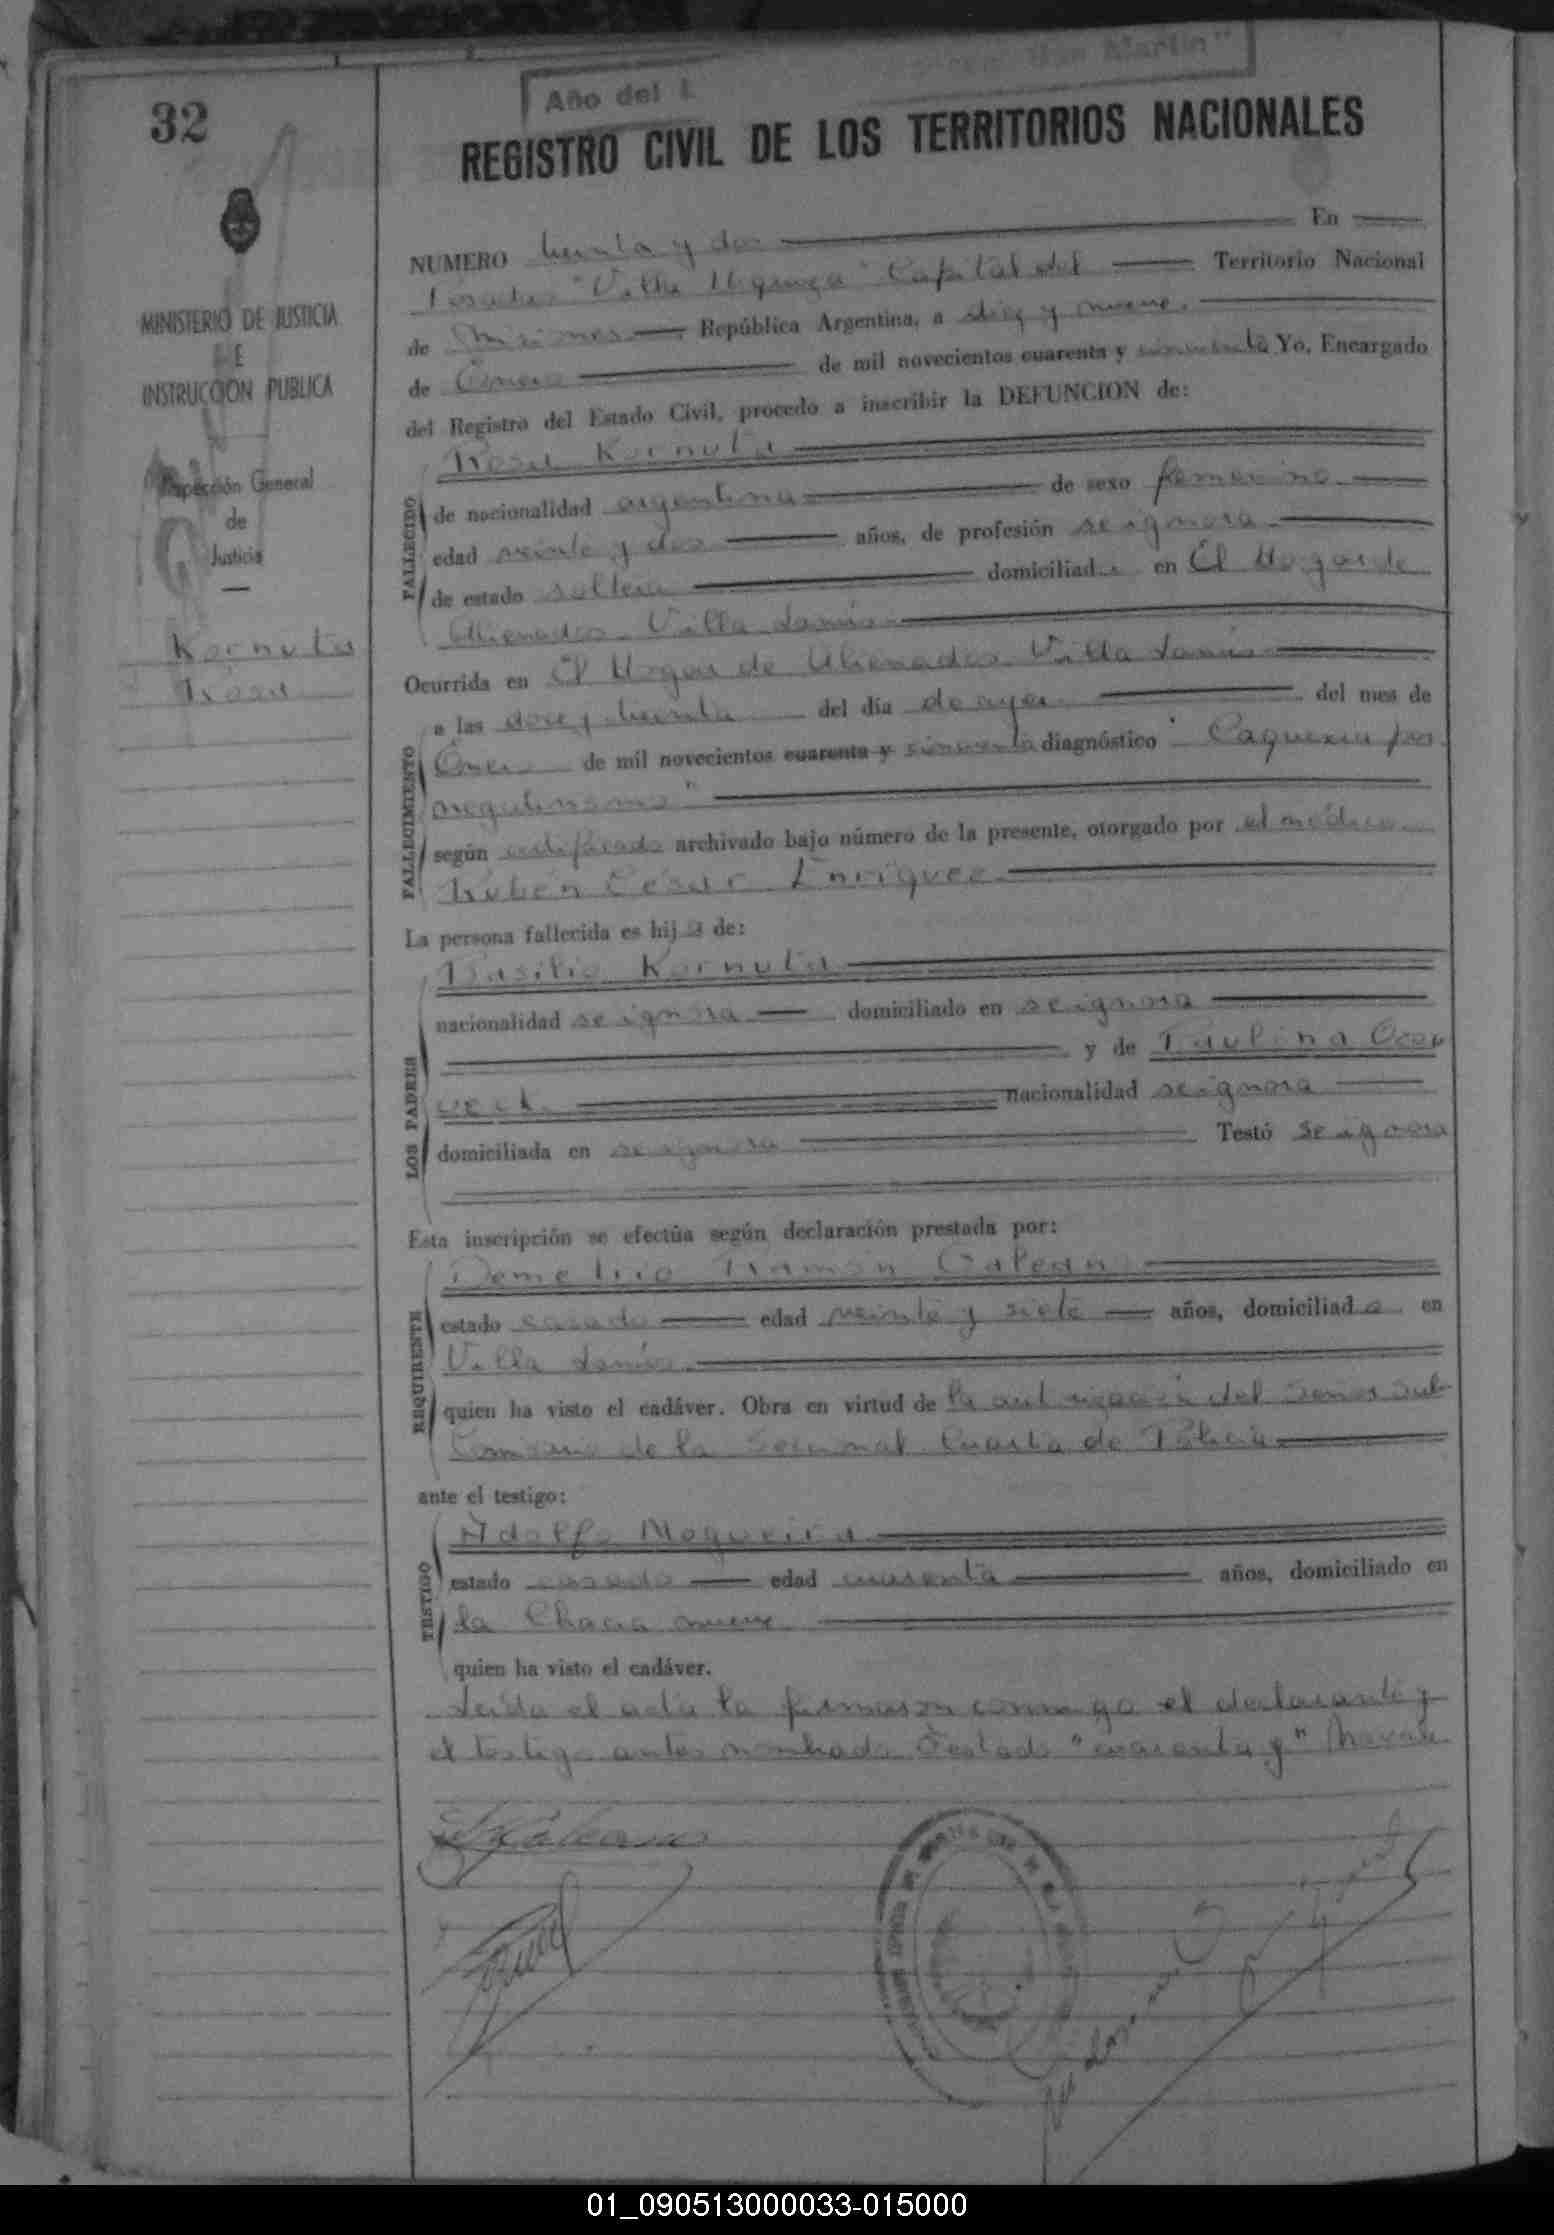 Año del L San Martín"
32
REGISTRO CIVIL DE LOS TERRITORIOS NACIONALES
NUMERO treinta y dos En
Posadas "Villa Urquiza" Capital del Territorio Nacional
MINISTERIO DE JUSTICIA
E
INSTRUCCION PUBLICA
de Misiones República Argentina, a diez y nueve.
de Enero de mil novecientos cuarenta y cincuenta Yo, Encargado
del Registro del Estado Civil, procedo a inscribir la DEFUNCION de:
Inspección General
de
Justicia
Kornuta
Rosa
FALLECIDO
Rosa Kornuta
de nacionalidad argentina de sexo femenino
edad veinte y dos años, de profesión se ignora
de estado soltera domiciliada en El Hogar de
Alienados Villa Lanús
Ocurrida en El Hogar de Alienados Villa Lanús
FALLECIMIENTO
a las doce y treinta del día de ayer del mes de
Enero de mil novecientos cuarenta y cincuenta diagnóstico "Caquexia por
negativismo"
según certificado archivado bajo número de la presente, otorgado por el médico
Rubén César Enriquez
La persona fallecida es hija de:
LOS PADRES
Basilio Kornuta
nacionalidad se ignora domiciliado en se ignora
y de Paulina
nacionalidad se ignora
domiciliada en se ignora Testó se ignora
Esta inscripción se efectúa según declaración prestada por:
REQUIRENTE
Demetrio Ramón Galeano
estado casado edad veinte y siete años, domiciliado en
Villa Lanús
quien ha visto el cadáver. Obra en virtud de la autorización del señor Sub
Comisario de la Seccional Cuarta de Policía
ante el testigo:
TESTIGO
Adolfo Nogueira
estado casado edad cuarenta años, domiciliado en
la Chacra nueve
quien ha visto el cadáver.
Leída el acta la firmaron conmigo el declarante y
el testigo antes nombrado Testado "cuarenta y" No vale
01_090513000033-015000